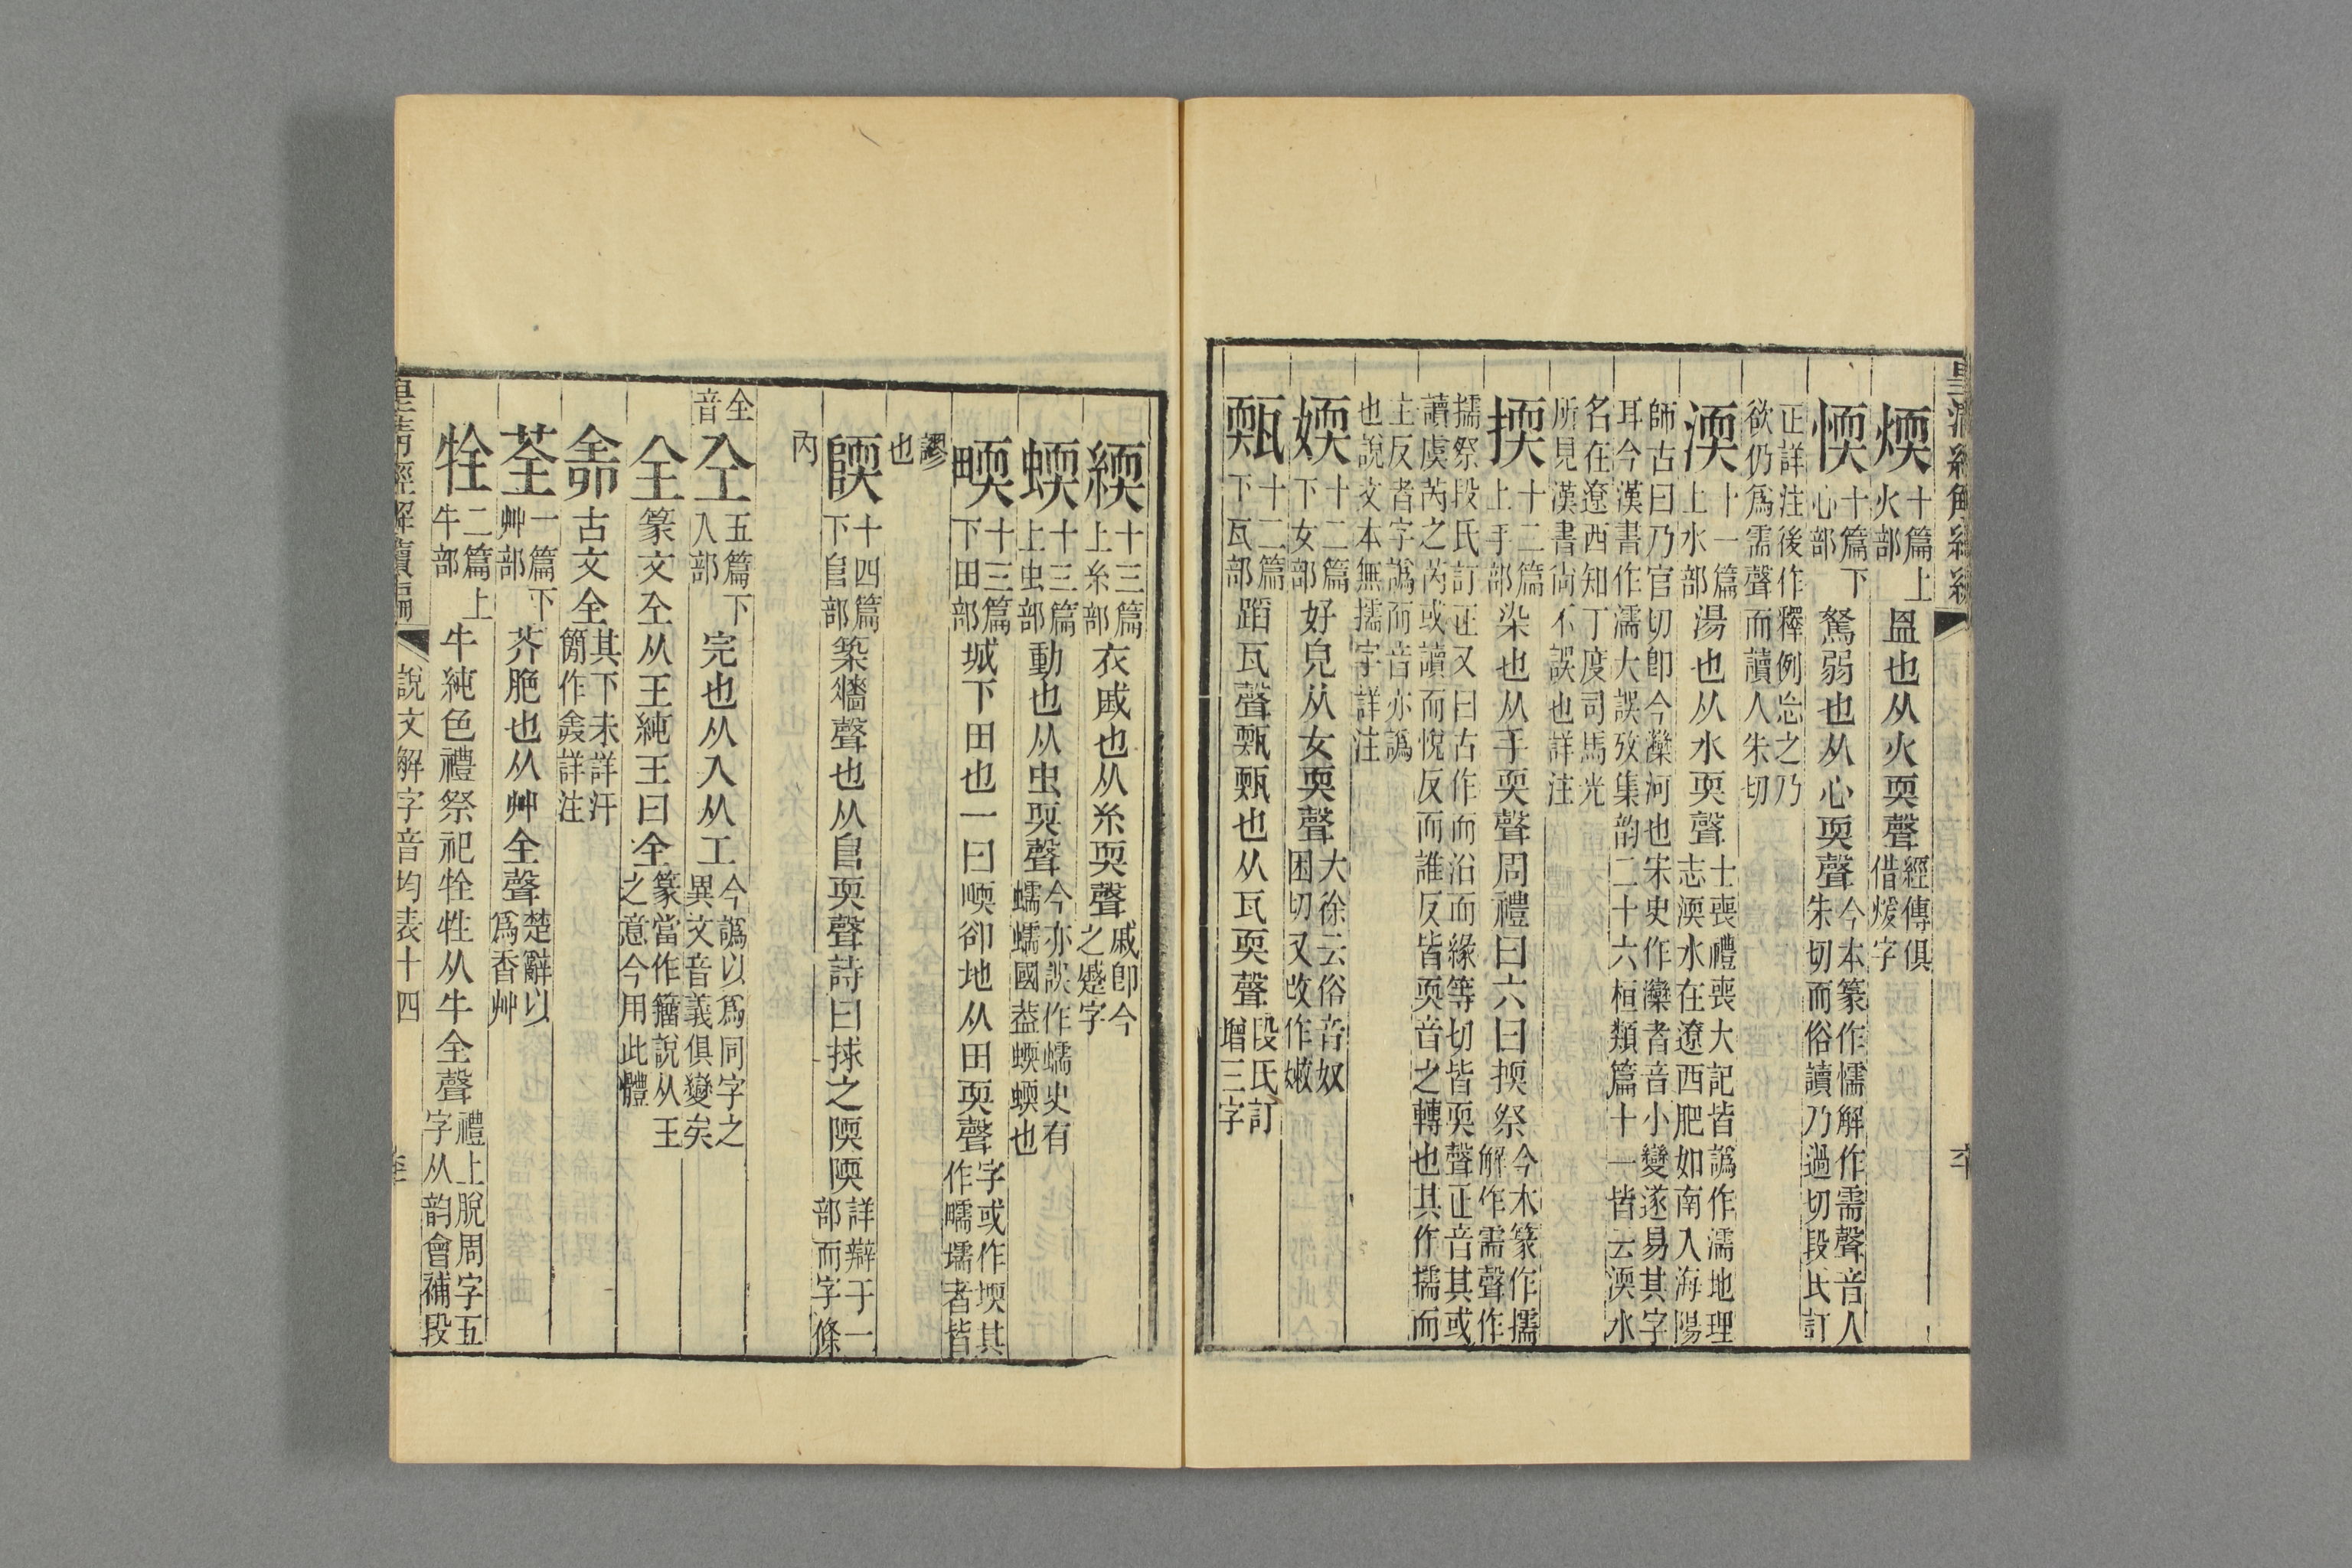 皇清經解續編
煗十篇上火部𥁕也从火耎聲經傳俱借煖字
愞十篇下心部駑弱也从心耎聲今本篆作懦解作需聲音人朱切而俗讀乃過切段氏訂
正詳注後作釋例忩之乃欲仍爲需聲而讀人朱切
渜十一篇上水部湯也从水耎聲士喪禮喪大記皆譌作濡地理志渜水在遼西肥如南入海陽
師古曰乃官切卽今灤河也宋史作灤者音小變遂易其字耳今漢書作濡大誤攷集韵二十六桓類篇十一皆云渜水
名在遼西知丁度司馬光所見漢書尙不誤也詳注
擩十二篇上手部染也从手耎聲周禮曰六曰㨎祭今木篆作擩解作需聲作
擩祭段氏訂正又曰古作而沿而緣等切皆耎聲正音其或讀虞芮之芮或讀而悅反而誰反皆耎音之轉也其作擩而
主反者字譌而音亦譌也說文本無擩字詳注
媆十二篇下女部好皃从女耎聲大徐云俗音奴困切又改作嫩
㼲十二篇下瓦部蹈瓦聲㼲㼲也从瓦耎聲段氏訂增三字
緛十三篇上糸部衣戚也从糸耎聲戚卽今之蹙字
蝡十三篇上虫部動也从虫耎聲今亦誤作蠕史有蠕蠕國葢蝡蝡也
㽭十三篇下田部城下田也一曰㽭郤地从田耎聲字或作堧其作疃壖者皆
謬也
陾十四篇下𨸏部築牆聲也从𨸏耎聲詩曰捄之陾陾詳辯于一部而字條
內
全音
仝五篇下入部完也从入从工今譌以爲同字之異文音義俱變矣
全篆文仝从王純王曰全篆當作籒說从王之意今用此體
𠓴古文全其下未詳汗簡作𠓴詳注
荃一篇下艸部芥脃也从艸全聲楚辭以爲香艸
牷二篇上牛部牛純色禮祭祀牷牲从牛全聲禮上脫周字五字从韵會補段
皇清經解續編 說文解字音均表十四